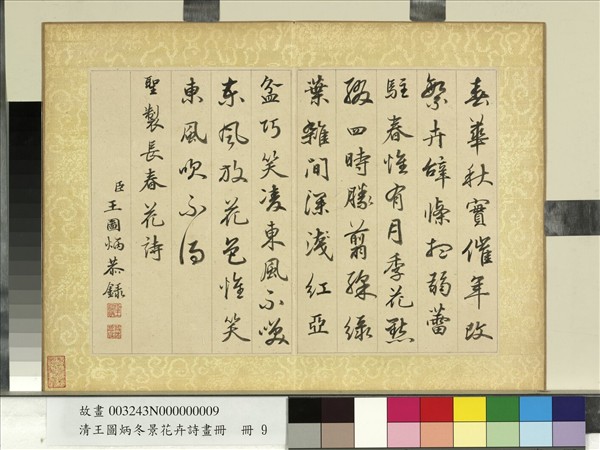 春華秋實催年改
繁卉辭條抽弱蕾
駐春惟有月季花點
綴四時勝剪綵綠
葉雜間深淺紅亞
盆巧笑凌東風不喚
東風放花色惟笑
東風吹不得
聖製長春花詩
臣王圖炳恭錄
故畫 003243N000000009
清王圖炳冬景花卉詩畫冊 冊 9